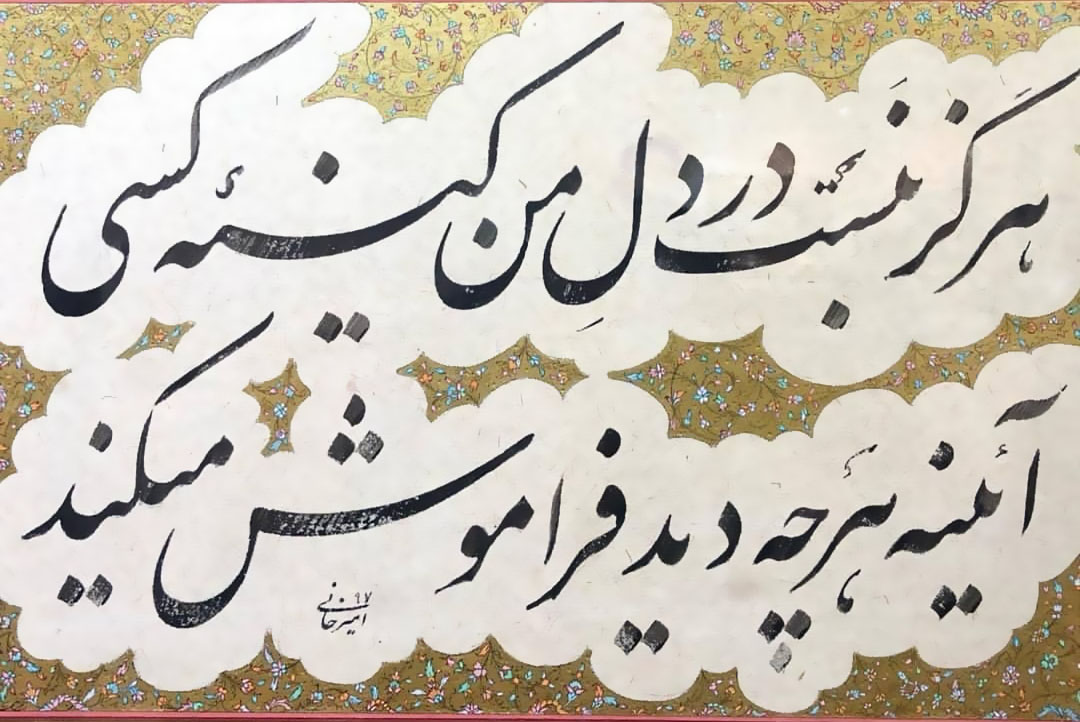 هرگز نبست در دل من کینهٔ کسی
آئینه هرچه دید فراموش میکند
امیرخانی ۹۷